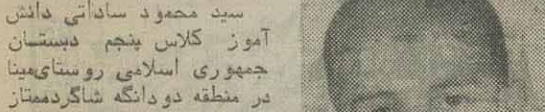 سید محمود ساداتی دانش
آموز کلاس پنجم دبستان
جمهوری اسلامی روستای‌مینا
در منطقه دودانگه شاگردممتاز